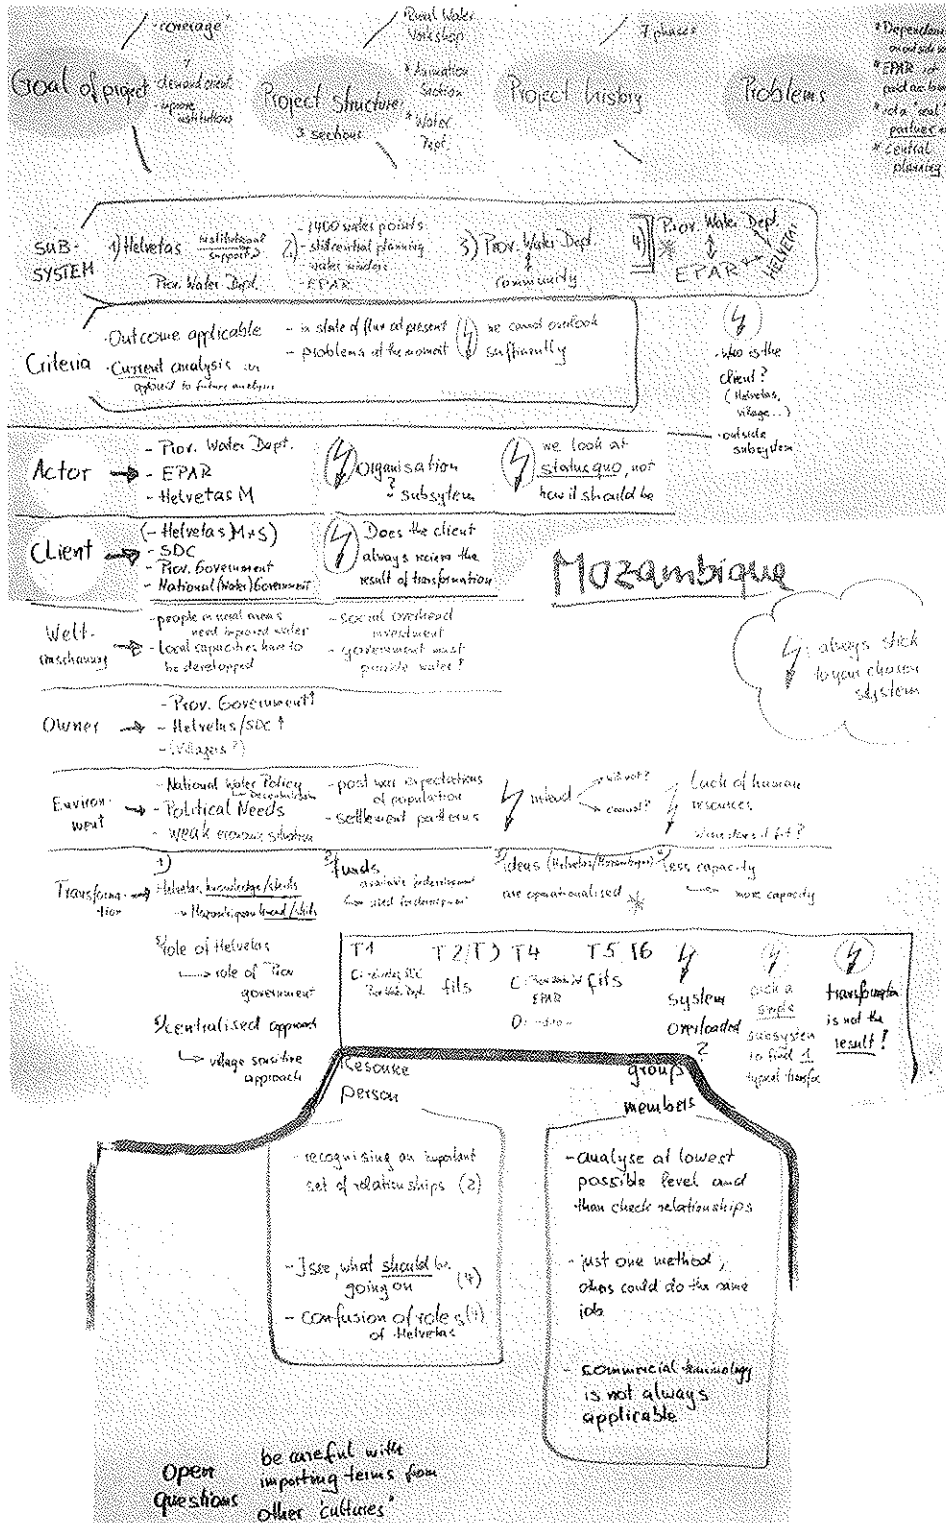 Goal of project
- coverage
- demand orient.
- improve institutions
Project structure
3 sections
* Rural Water Workshop
* Animation Section
* Water Dept.
Project history
7 phases
Problems
* EPAR not
* not a "real" partner
* central planning
SUB-SYSTEM
1) Helvetas institutional support
Prov. Water Dept.
2) - 1400 water points
- still central planning
- EPAR
3) Prov. Water Dept.
community
4) Prov. Water Dept
EPAR
HELVETAS
Criteria
- Outcome applicable
- Current analysis
opposed to future analysis
- in state of flux at present
- problems at the moment
we cannot overlook
sufficiently
- who is the
client?
(Helvetas,
village...)
- outside
subsystem
Actor
- Prov. Water Dept.
- EPAR
- Helvetas M
Organisation
? subsytem
we look at
status quo, not
how it should be
Client
(- Helvetas M+S)
- SDC
- Prov. Government
- National (Water) Government
Does the client
always recieve the
result of transformation
Mozambique
always stick
to your chosen
system
Welt-
anschauung
- people in rural areas
need improved water
- local capacities have to
be developped
- social overhead
investment
- government must
provide water!
Owner
- Prov. Government ↑
- Helvetas/SDC ↑
- (Villagers?)
Environ-
ment
- National Water Policy
- Political Needs
- weak economic situation
- post war expectations
of population
- settlement patterns
will not?
cannot?
Lack of human
resources
where does it fit?
Transforma-
tion
1)
Helvetas knowledge/skills
→ Mozambiquan knowl/skills
2) funds
available for development
used for development
3) ideas (Helvetas/Mozambique)
are operationalised
4) less capacity
more capacity
5) role of Helvetas
→ role of Prov
government
6) centralised approach
→ village sensitive
approach
T1
T2/T3
fits
T4
C:
EPAR
O:
T5, T6
fits
system
overloaded
?
pick a
single
subsystem
to find 1
typical transfo
transformation
is not the
result!
Resource
person
- recognising an important
set of relationships (2)
- I see, what should be
going on (4)
- confusion of roles (1)
of Helvetas
group
members
- analyse at lowest
possible level and
than check relationships
- just one method,
others could do the same
job
- commercial terminology
is not always
applicable
Open
questions
be careful with
importing terms from
other "cultures"